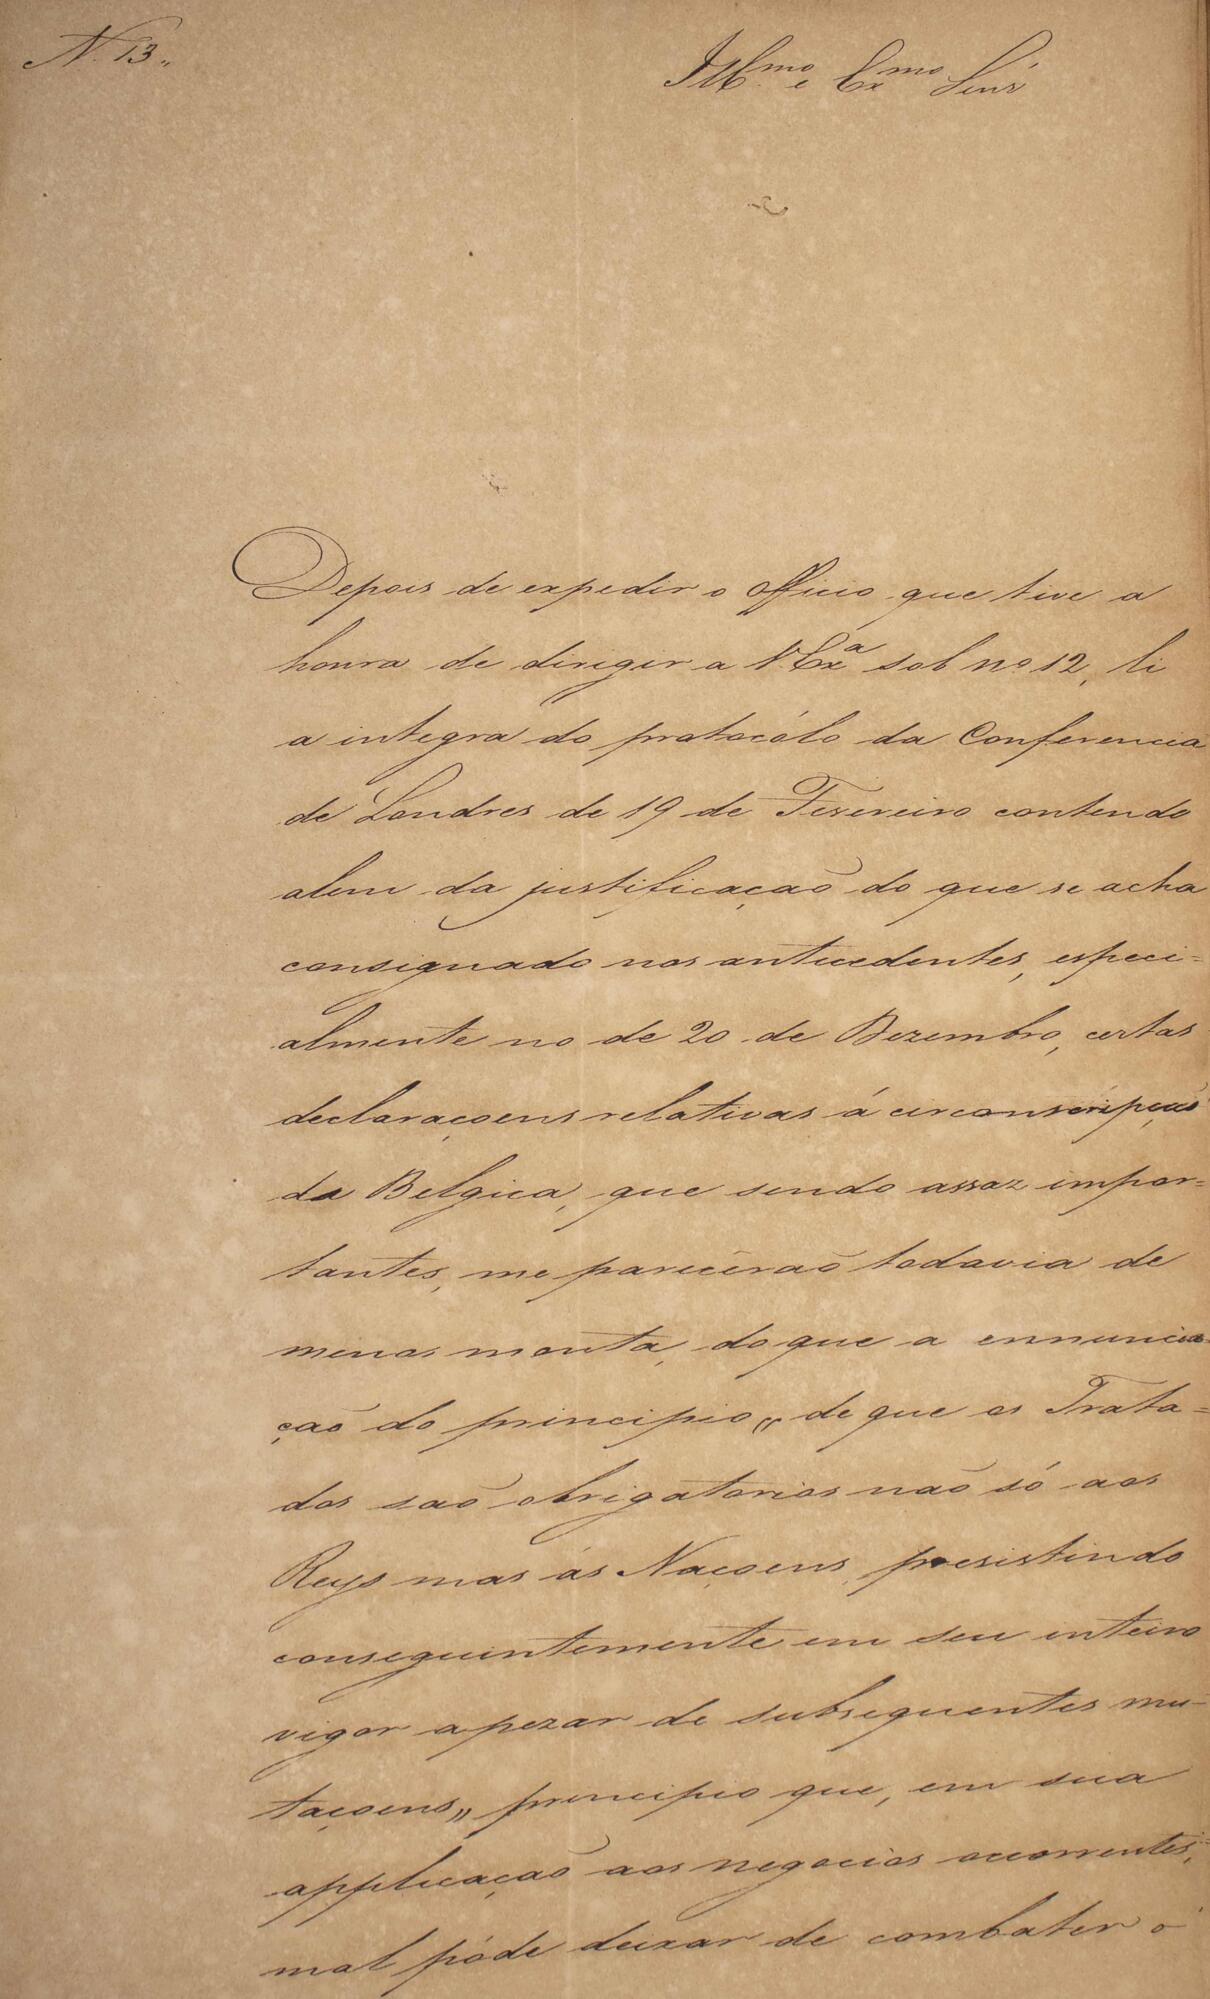 N. 13.
Ill.mo e Ex.mo Senr
Depois de expedir o officio que tive a
honra de dirigir a V. Exa sob no 12, li
a integra do protocólo da Conferencia
de Londres de 19 de Fevereiro contendo
alem da justificaçaõ do que se acha
consignado nos antecedentes, especi=
almente no de 20 de Dezembro, certas
declaraçoens relativas á circonscripçaõ
da Belgica, que sendo assaz impor=
tantes, me parecêraõ todavia de
menos monta, do que a ennuncia
çaõ do principio „ de que os Trata=
dos saõ obrigatorios naõ só aos
Reys mas ás Naçoens, presistindo
conseguintemente em seu inteiro
vigor apezar de subsequentes mu-
taçoens „ principio que, em sua
applicaçaõ aos negocios occorrentes,
mal póde deixar de combater o